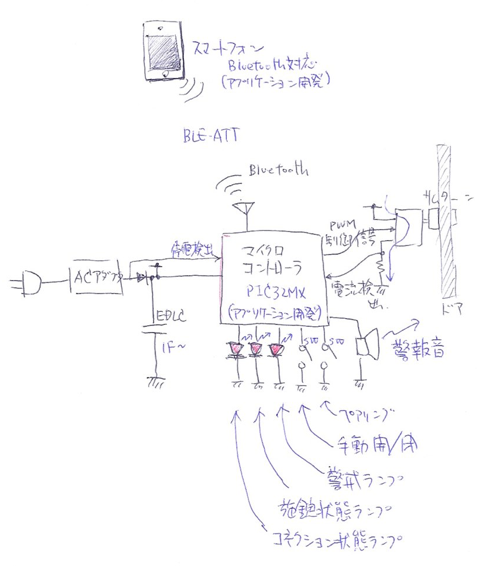 スマートフォン
Bluetooth対応
(アプリケーション開発)
BLE-ATT
Bluetooth
サムターン
PWM
制御信号
停電検出
マイクロ
コントローラ
PIC32MX
(アプリケーション開発)
ACアダプタ
電流検
出
ドア
EDLC
1F~
SW
SW
警報音
ペアリング
手動開/閉
警戒ランプ
施錠状態ランプ
コネクション状態ランプ